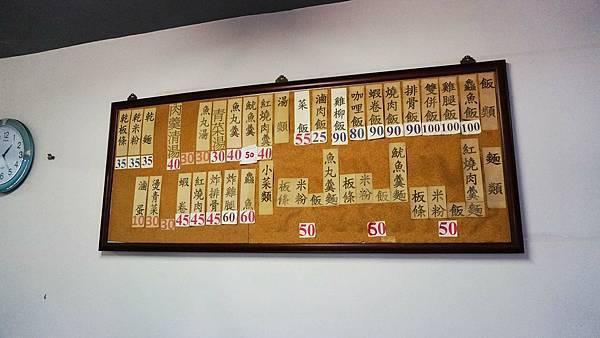 飯類
鱻魚飯 100
雞腿飯 100
雙併飯 100
排骨飯 90
燒肉飯 90
蝦卷飯 90
咖哩飯 80
雞柳飯 90
滷肉飯 25
菜飯 55
湯類
紅燒肉羹 40
魷魚羹 50
魚丸羹 40
青菜湯 30
魚丸湯 30
30
肉羹清湯 40
乾麵 35
乾米粉 35
乾板條 35
麵類
紅燒肉羹麵
飯
米粉
板條
50
魷魚羹麵
飯
米粉
板條
50
魚丸羹麵
米粉
板條
50
小菜類
鱻魚 60
炸雞腿 60
炸排骨 45
紅燒肉 45
蝦卷 45
30
燙青菜 30
滷蛋 10